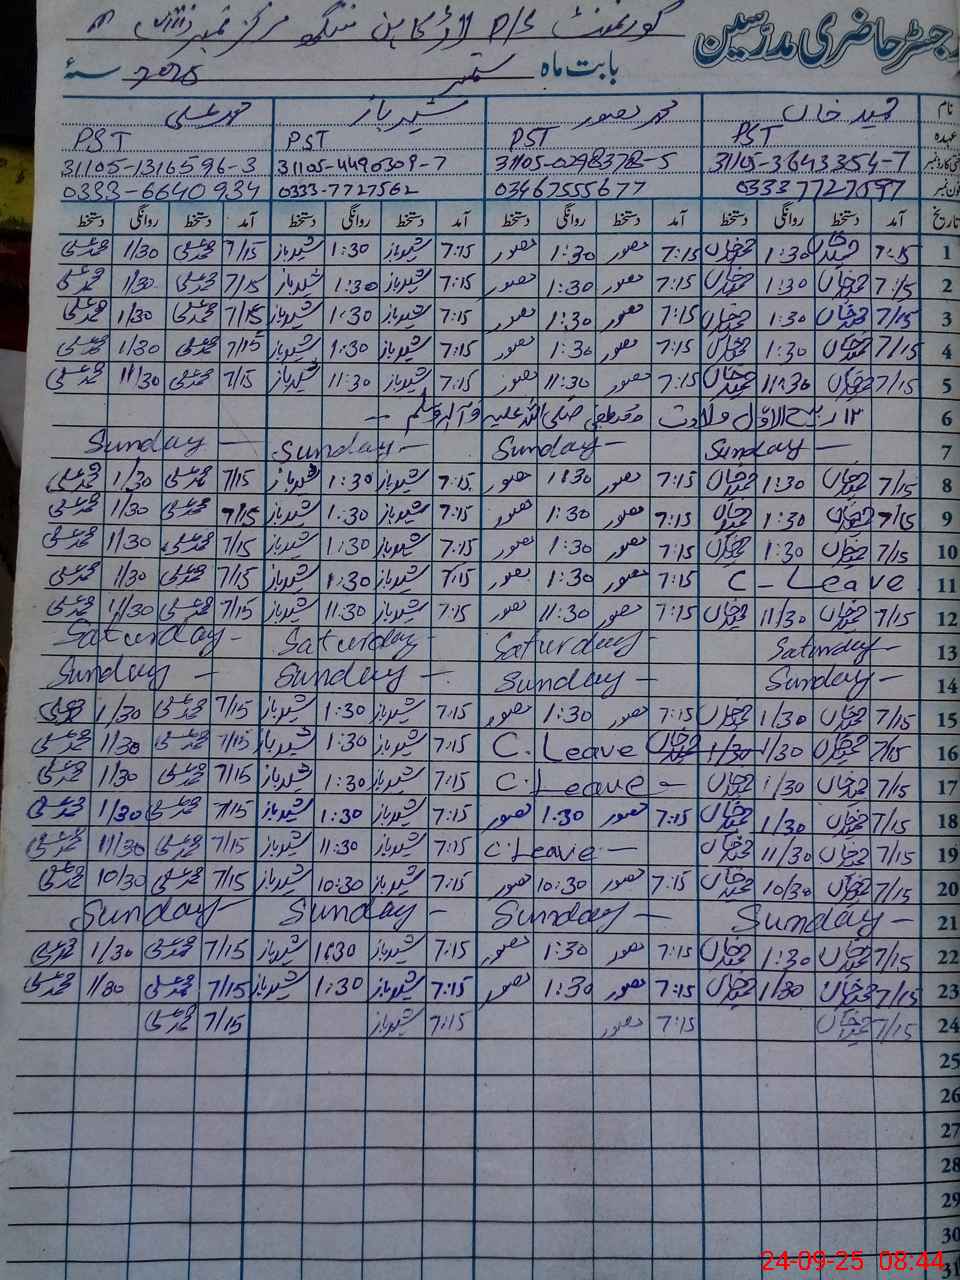 رجسٹر حاضری مدرسین گورنمنٹ P/S مرکز نمبر
بابت ماہ ستمبر 2025 سنہ
نام حمید خاں محمد منصور شیر باز محمد علی
عہدہ PST PST PST PST
شناختی کارڈ نمبر 31105-3643354-7 31105-0298378-5 31105-4490309-7 31105-1316596-3
فون نمبر 03337727597 03467555677 0333-7727562 0333-6640934
تاریخ آمد دستخط روانگی دستخط آمد دستخط روانگی دستخط آمد دستخط روانگی دستخط آمد دستخط روانگی دستخط
1 7:15 حمید خاں 1:30 حمید خاں 7:15 منصور 1:30 منصور 7:15 شیر باز 1:30 شیر باز 7/15 محمد علی 1/30 محمد علی
2 7:15 حمید خاں 1:30 حمید خاں 7:15 منصور 1:30 منصور 7:15 شیر باز 1:30 شیر باز 7/15 محمد علی 1/30 محمد علی
3 7/15 حمید خاں 1:30 حمید خاں 7:15 منصور 1:30 منصور 7:15 شیر باز 1:30 شیر باز 7/15 محمد علی 1/30 محمد علی
4 7/15 حمید خاں 1:30 حمید خاں 7:15 منصور 1:30 منصور 7:15 شیر باز 1:30 شیر باز 7/15 محمد علی 1/30 محمد علی
5 7/15 حمید خاں 11:30 حمید خاں 7:15 منصور 11:30 منصور 7:15 شیر باز 11:30 شیر باز 7/15 محمد علی 11/30 محمد علی
6 ۱۲ ربیع الاوّل ولادت مصطفی صلی اللہ علیہ وآلہ وسلم -
7 Sunday - Sunday - Sunday - Sunday -
8 7/15 حمید خاں 1:30 حمید خاں 7:15 منصور 1:30 منصور 7:15 شیر باز 1:30 شیر باز 7/15 محمد علی 1/30 محمد علی
9 7/15 حمید خاں 1:30 حمید خاں 7:15 منصور 1:30 منصور 7:15 شیر باز 1:30 شیر باز 7/15 محمد علی 1/30 محمد علی
10 7/15 حمید خاں 1:30 حمید خاں 7:15 منصور 1:30 منصور 7:15 شیر باز 1:30 شیر باز 7/15 محمد علی 1/30 محمد علی
11 C-Leave 7:15 منصور 1:30 منصور 7:15 شیر باز 1:30 شیر باز 7/15 محمد علی 1/30 محمد علی
12 7/15 حمید خاں 11/30 حمید خاں 7:15 منصور 11:30 منصور 7:15 شیر باز 11:30 شیر باز 7/15 محمد علی 11/30 محمد علی
13 Saturday- Saturday- Saturday- Saturday-
14 Sunday - Sunday - Sunday - Sunday -
15 7/15 حمید خاں 1/30 حمید خاں 7:15 منصور 1:30 منصور 7:15 شیر باز 1:30 شیر باز 7/15 محمد علی 1/30 محمد علی
16 7/15 حمید خاں 1/30 1/30 حمید خاں C. Leave 7:15 شیر باز 1:30 شیر باز 7/15 محمد علی 1/30 محمد علی
17 7/15 حمید خاں 1/30 حمید خاں C. Leave - 7:15 شیر باز 1:30 شیر باز 7/15 محمد علی 1/30 محمد علی
18 7/15 حمید خاں 1/30 حمید خاں 7:15 منصور 1:30 منصور 7:15 شیر باز 1:30 شیر باز 7/15 محمد علی 1/30 محمد علی
19 7/15 حمید خاں 11/30 حمید خاں C.Leave - 7:15 شیر باز 11:30 شیر باز 7/15 محمد علی 11/30 محمد علی
20 7/15 حمید خاں 10/30 حمید خاں 7:15 منصور 10:30 منصور 7:15 شیر باز 10:30 شیر باز 7/15 محمد علی 10/30 محمد علی
21 Sunday - Sunday - Sunday - Sunday -
22 7/15 حمید خاں 1:30 حمید خاں 7:15 منصور 1:30 منصور 7:15 شیر باز 1:30 شیر باز 7/15 محمد علی 1/30 محمد علی
23 7/15 حمید خاں 1/30 حمید خاں 7:15 منصور 1:30 منصور 7:15 شیر باز 1:30 شیر باز 7/15 محمد علی 1/30 محمد علی
24 7/15 حمید خاں 7:15 منصور 7:15 شیر باز 7/15 محمد علی
25
26
27
28
29
30
31
24-09-25 08:44